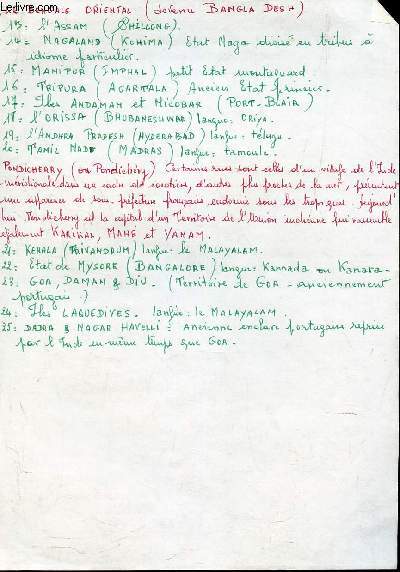 LE BENGALE ORIENTAL (devenu BANGLA DESH)
13: l'ASSAM (SHILLONG).
14: NAGALAND (KOHIMA) Etat Naga divisé en tribus à
idiome particulier.
15: MANIPUR (IMPHAL) petit Etat montagnard
16: TRIPURA (AGARTALA) Ancien Etat princier.
17: Iles ANDAMAN et NICOBAR (PORT-BLAIR)
18: l'ORISSA (BHUBANESWAR) langue: ORIYA.
19: l'ANDHRA PRADESH (HYDERABAD) langue: télugu
20: TAMIL NADU (MADRAS) langue: tamoule.
PONDICHERRY (ou Pondichéry) Certaines rues sont celles d'un village de l'Inde
méridionale dans un coin de, d'autres plus proches de la mer, présentent
une apparence de sous-préfecture française endormie sous les tropiques. Aujourd'
hui Pondichéry est la capitale d'un Territoire de l'Union indienne qui rassemble
également KARIKAL, MAHE et YANAM.
21: KERALA (TRIVANDRUM) langue: le MALAYALAM.
22: Etat de MYSORE (BANGALORE) langue: Kannada ou Kanara-
23: GOA, DAMAN & DIU. (Territoire de GOA - anciennement
portugais)
24: Iles LAQUEDIVES. langue: le MALAYALAM.
25: DADRA & NAGAR HAVELLI: ancienne enclave portugaise reprise
par l'Inde en même temps que GOA.
LE-LIVRE.COM